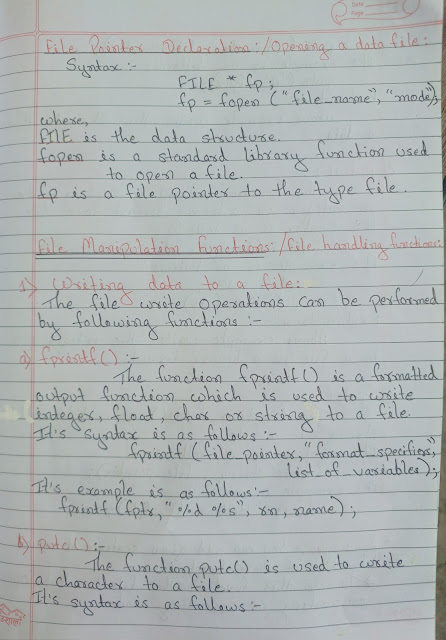 Date
Page
File Pointer Declaration:/Opening a data file:
Syntax :-
FILE * fp;
fp = fopen ("file_name", "mode");
where,
FILE is the data structure.
fopen is a standard library function used
to open a file.
fp is a file pointer to the type file.
File Manipulation Functions:/File handling functions:
1) Writing data to a file:
The file write operations can be performed
by following functions :-
a) fprintf() :-
The function fprintf() is a formatted
output function which is used to write
integer, float, char or string to a file.
It's syntax is as follows :-
fprintf (file_pointer, "format_specifiers",
list_of_variables);
It's example is as follows:-
fprintf (fptr, "%d %s", rn, name);
b) putc() :-
The function putc() is used to write
a character to a file.
It's syntax is as follows :-